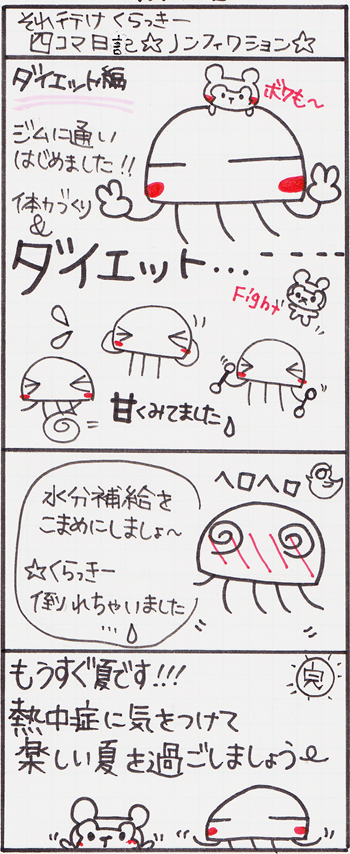 それ行け くらっきー
四コマ日記☆ノンフィクション☆
ダイエット編
ボクも〜
ジムに通い
はじめました!!
体力づくり
&
ダイエット…
Fight
甘くみてました
ヘロヘロ
水分補給を
こまめにしましょ〜
☆くらっきー
倒れちゃいました
…
もうすぐ夏です!!!
熱中症に気をつけて
楽しい夏を過ごしましょう